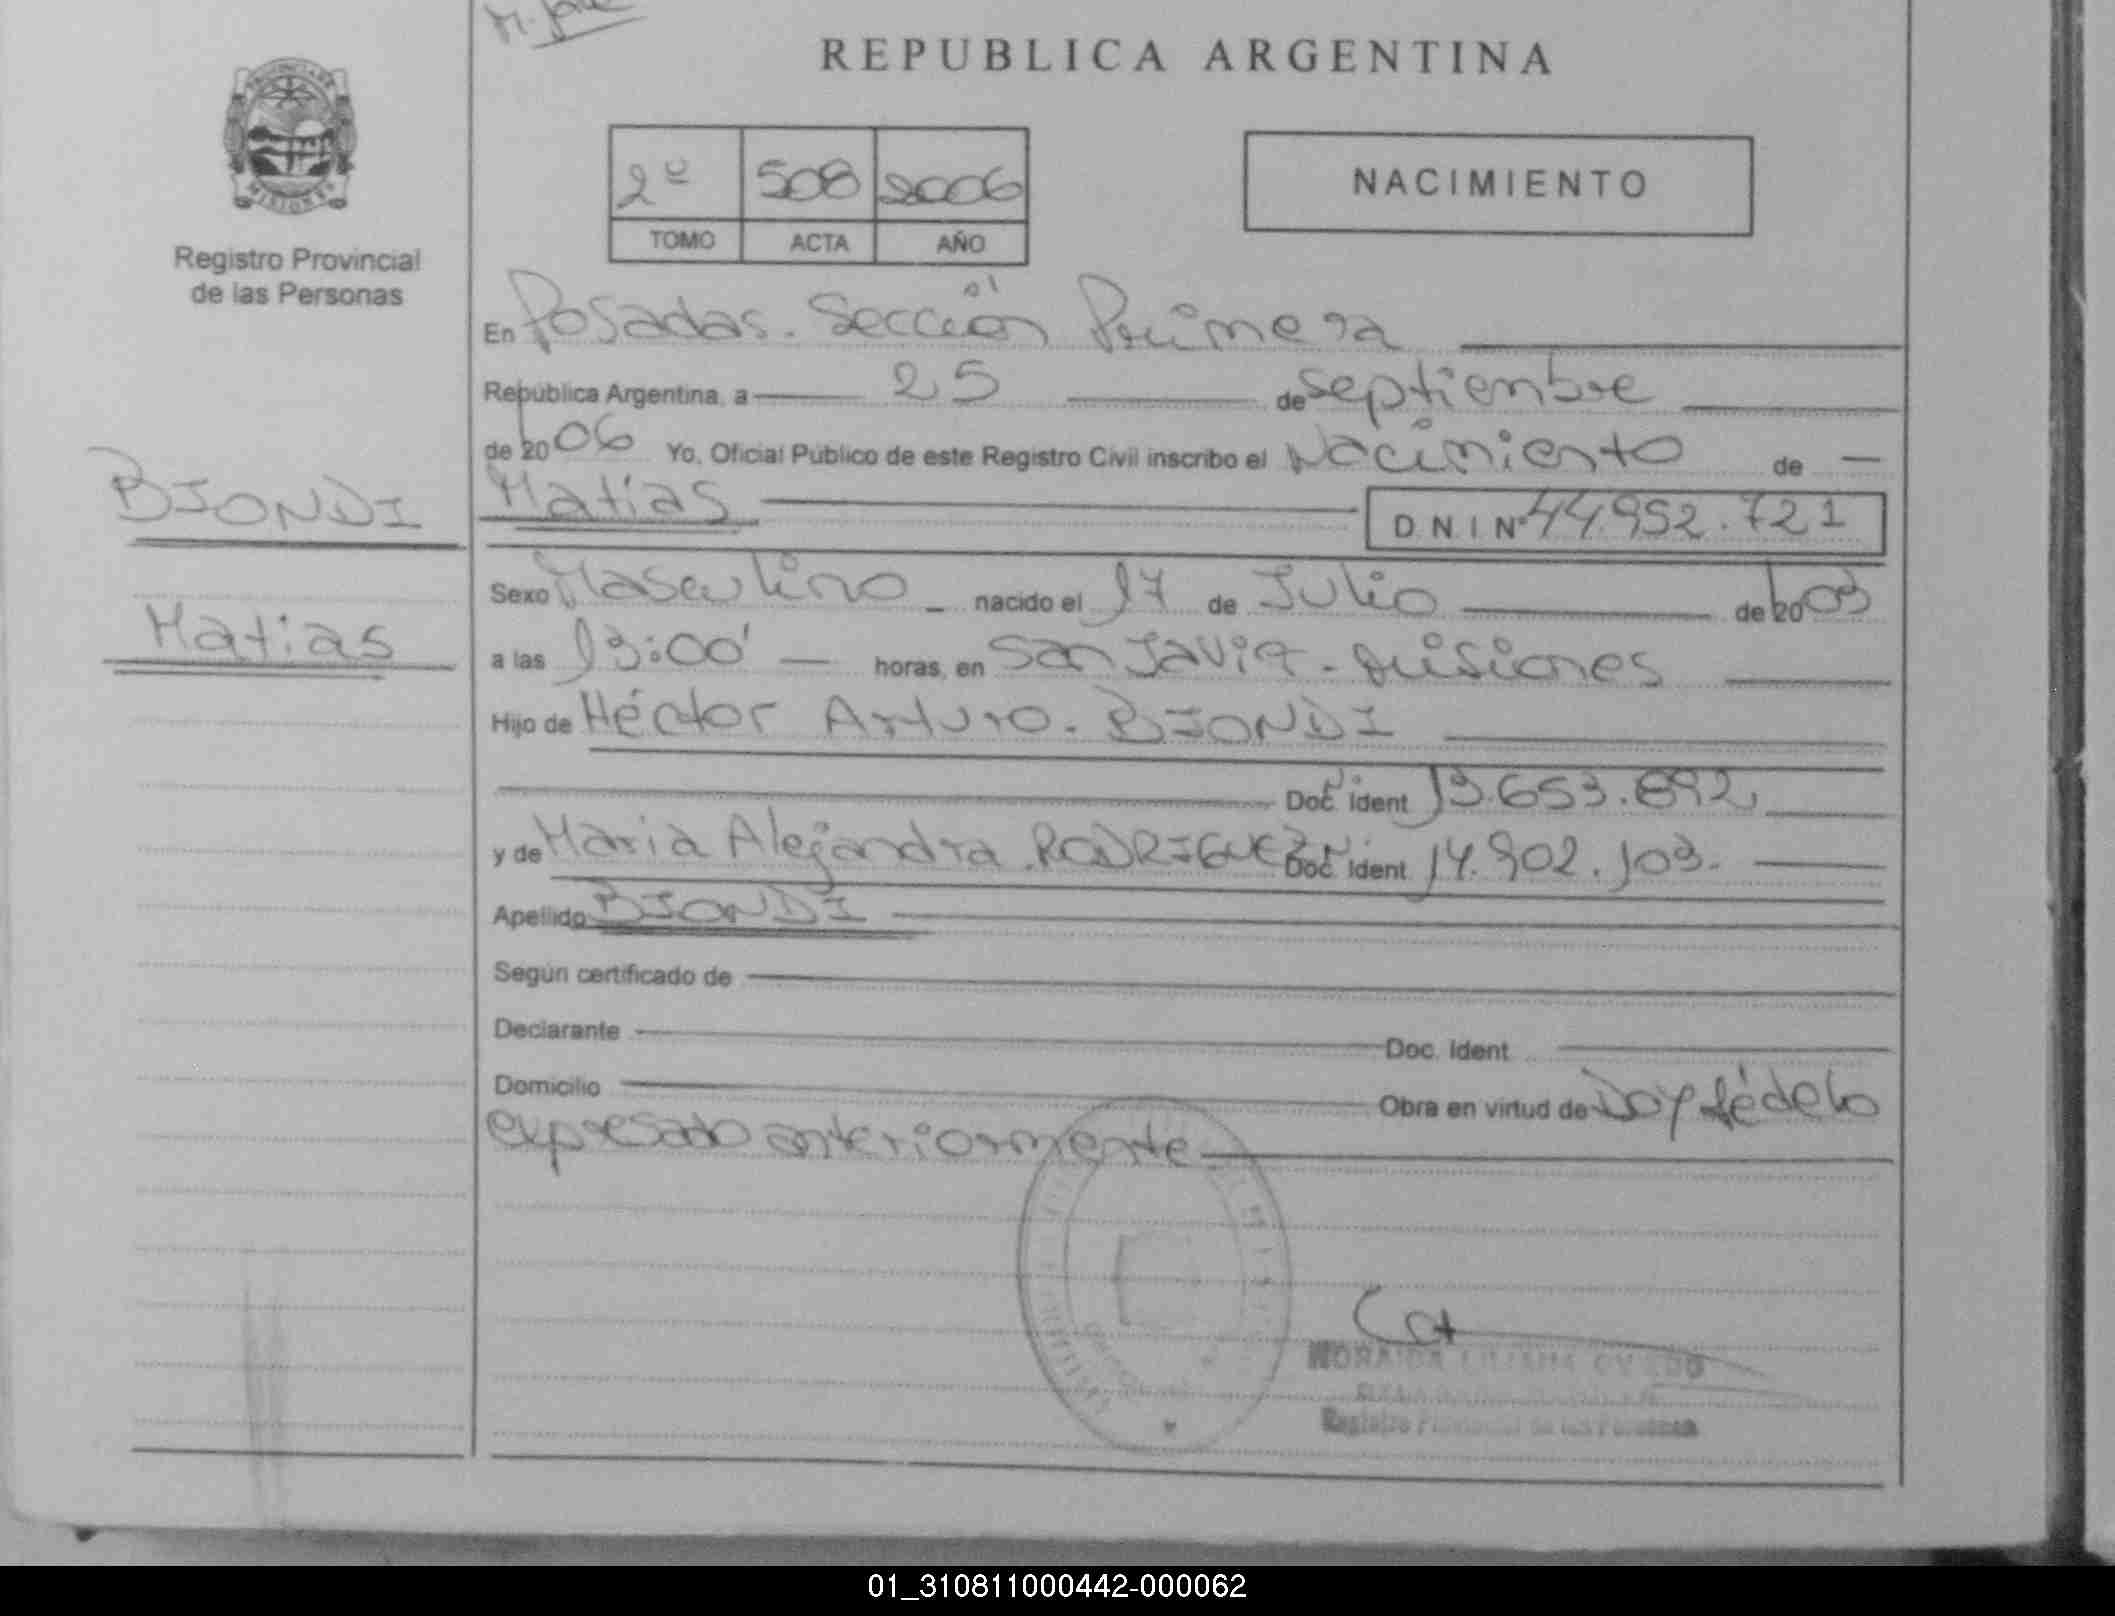 REPUBLICA ARGENTINA
PROVINCIA DE
MISIONES
Registro Provincial
de las Personas
2º 508 2006
TOMO ACTA AÑO
NACIMIENTO
En Posadas. Sección Primera
República Argentina, a 25 de septiembre
de 2006 Yo, Oficial Público de este Registro Civil inscribo el Nacimiento de
BIONDI
Matías D.N.I Nº 44.952.721
Sexo Masculino nacido el 17 de Julio de 2003
Matias
a las 13:00' horas, en San Javier - Misiones
Hijo de Héctor Arturo. BIONDI
Doc. Ident 13.653.892
y de Maria Alejandra RODRIGUEZ Doc. Ident. 14.902.103.
Apellido BIONDI
Según certificado de
Declarante Doc. Ident
Domicilio Obra en virtud de Doy fé de lo
expresado anteriormente
LILIANA
Registro Provincial de las Personas
01_310811000442-000062